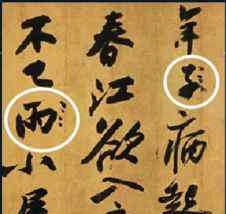 年子病起
春江欲入
不已雨小屋